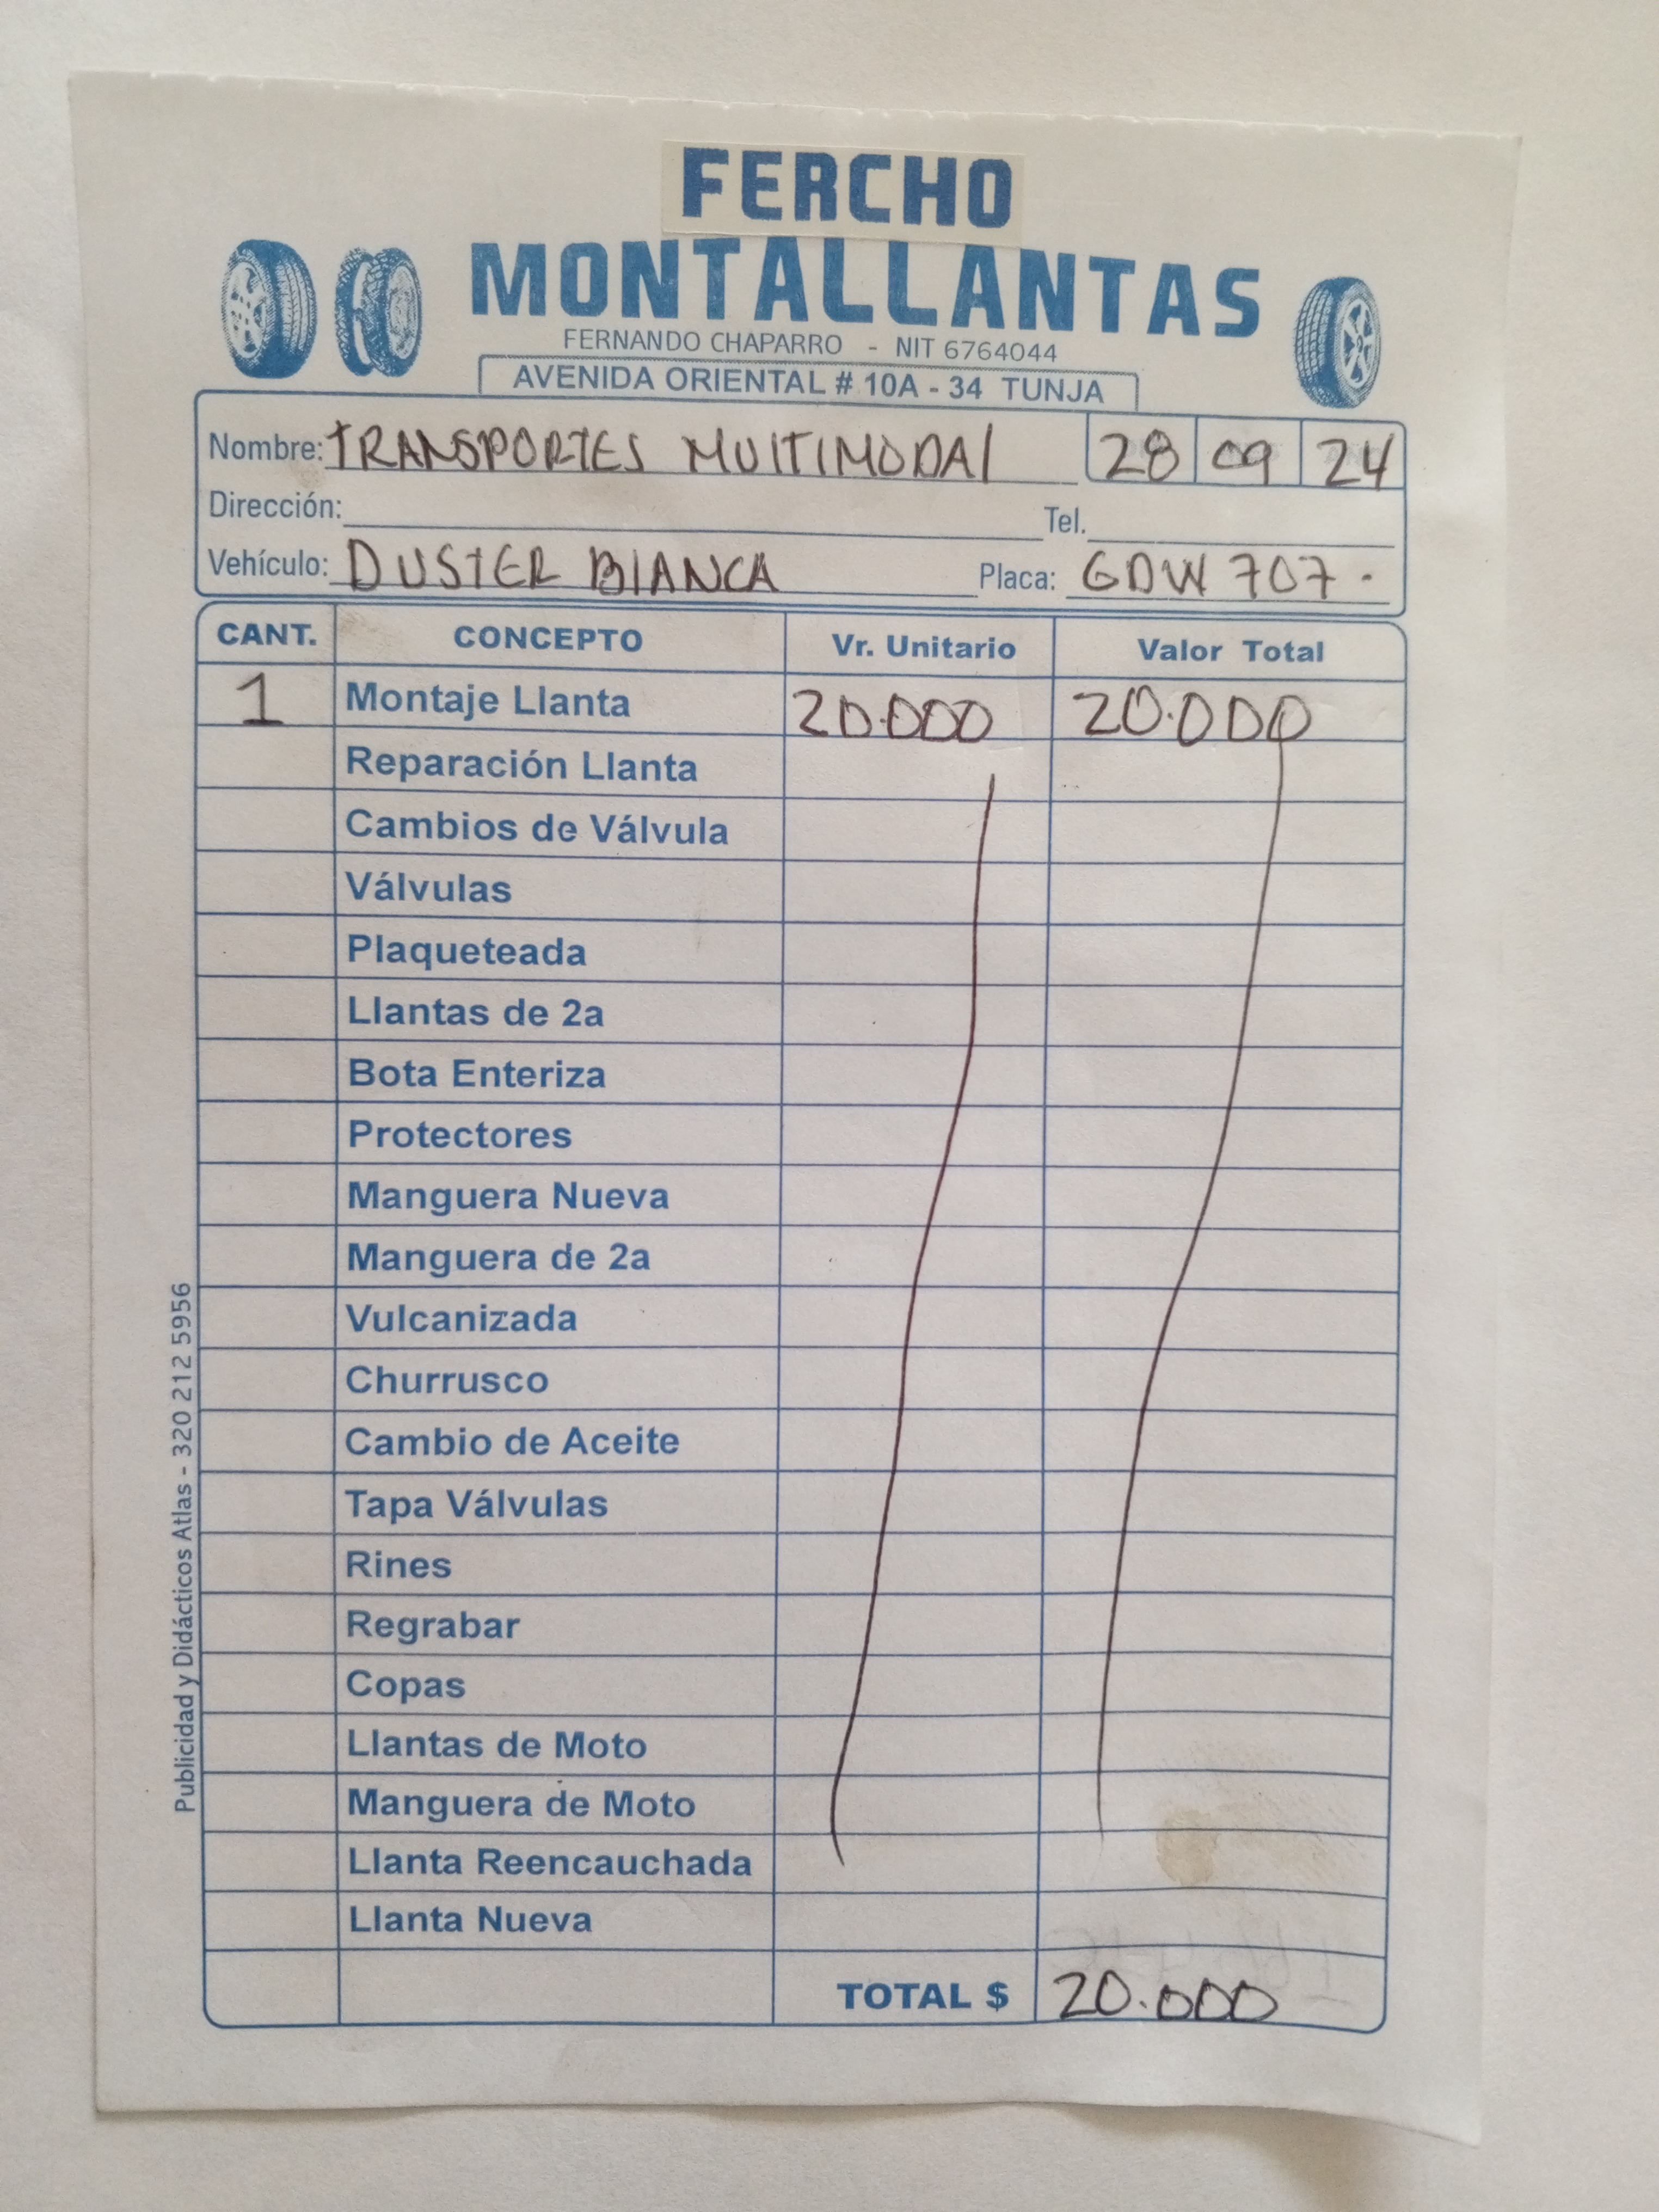 FERCHO
MONTALLANTAS
FERNANDO CHAPARRO - NIT 6764044
AVENIDA ORIENTAL # 10A - 34 TUNJA
Nombre: TRANSPORTES MULTIMODAL 28 09 24
Dirección: Tel.
Vehículo: DUSTER BLANCA Placa: GDW 707.
CANT. CONCEPTO Vr. Unitario Valor Total
1 Montaje Llanta 20.000 20.000
Reparación Llanta
Cambios de Válvula
Válvulas
Plaqueteada
Llantas de 2a
Bota Enteriza
Protectores
Manguera Nueva
Manguera de 2a
Vulcanizada
Churrusco
Cambio de Aceite
Tapa Válvulas
Rines
Regrabar
Copas
Llantas de Moto
Manguera de Moto
Llanta Reencauchada
Llanta Nueva
TOTAL $ 20.000
Publicidad y Didácticos Atlas - 320 212 5956